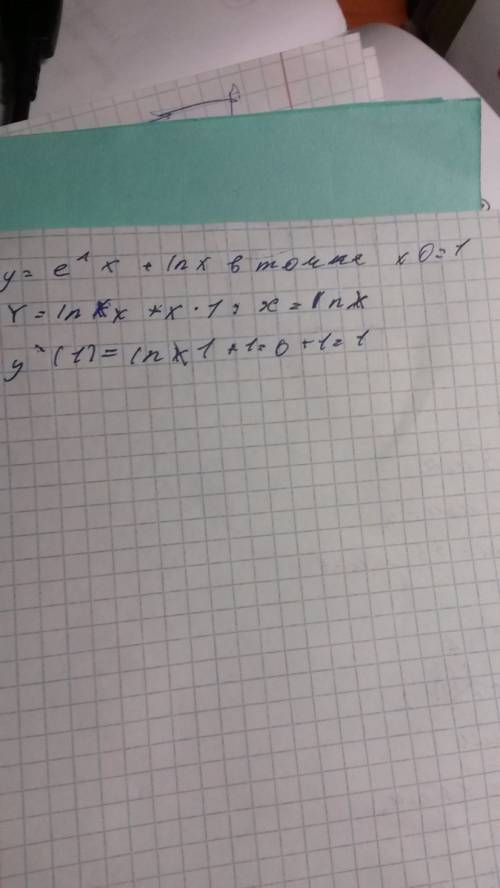 y = e^x + ln x в точке x0=1
Y = ln x + x · 1 : x = ln x
y' (1) = ln 1 + 1 = 0 + 1 = 1